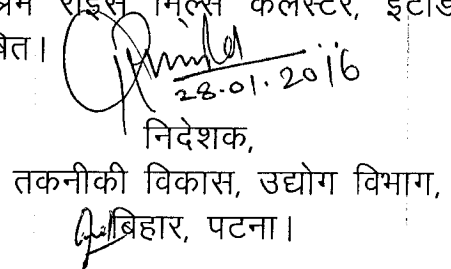 राईस मिल्स कलस्टर, इटाढ
28.01.2016
निदेशक,
तकनीकी विकास, उद्योग विभाग,
बिहार, पटना।